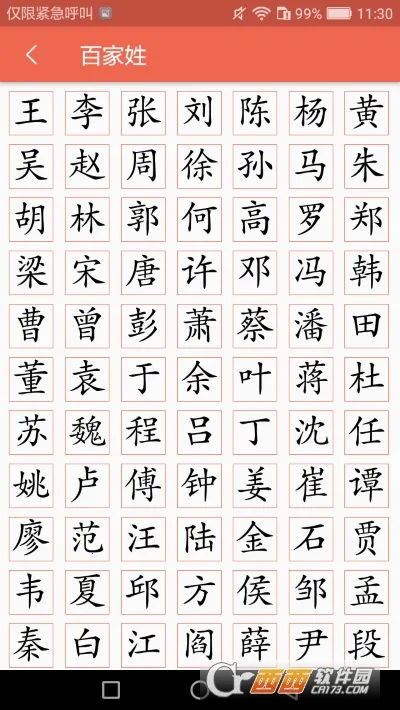 仅限紧急呼叫 99% 11:30
百家姓
王 李 张 刘 陈 杨 黄
吴 赵 周 徐 孙 马 朱
胡 林 郭 何 高 罗 郑
梁 宋 唐 许 邓 冯 韩
曹 曾 彭 萧 蔡 潘 田
董 袁 于 余 叶 蒋 杜
苏 魏 程 吕 丁 沈 任
姚 卢 傅 钟 姜 崔 谭
廖 范 汪 陆 金 石 贾
韦 夏 邱 方 侯 邹 孟
秦 白 江 阎 薛 尹 段
西西软件园
CR173.COM